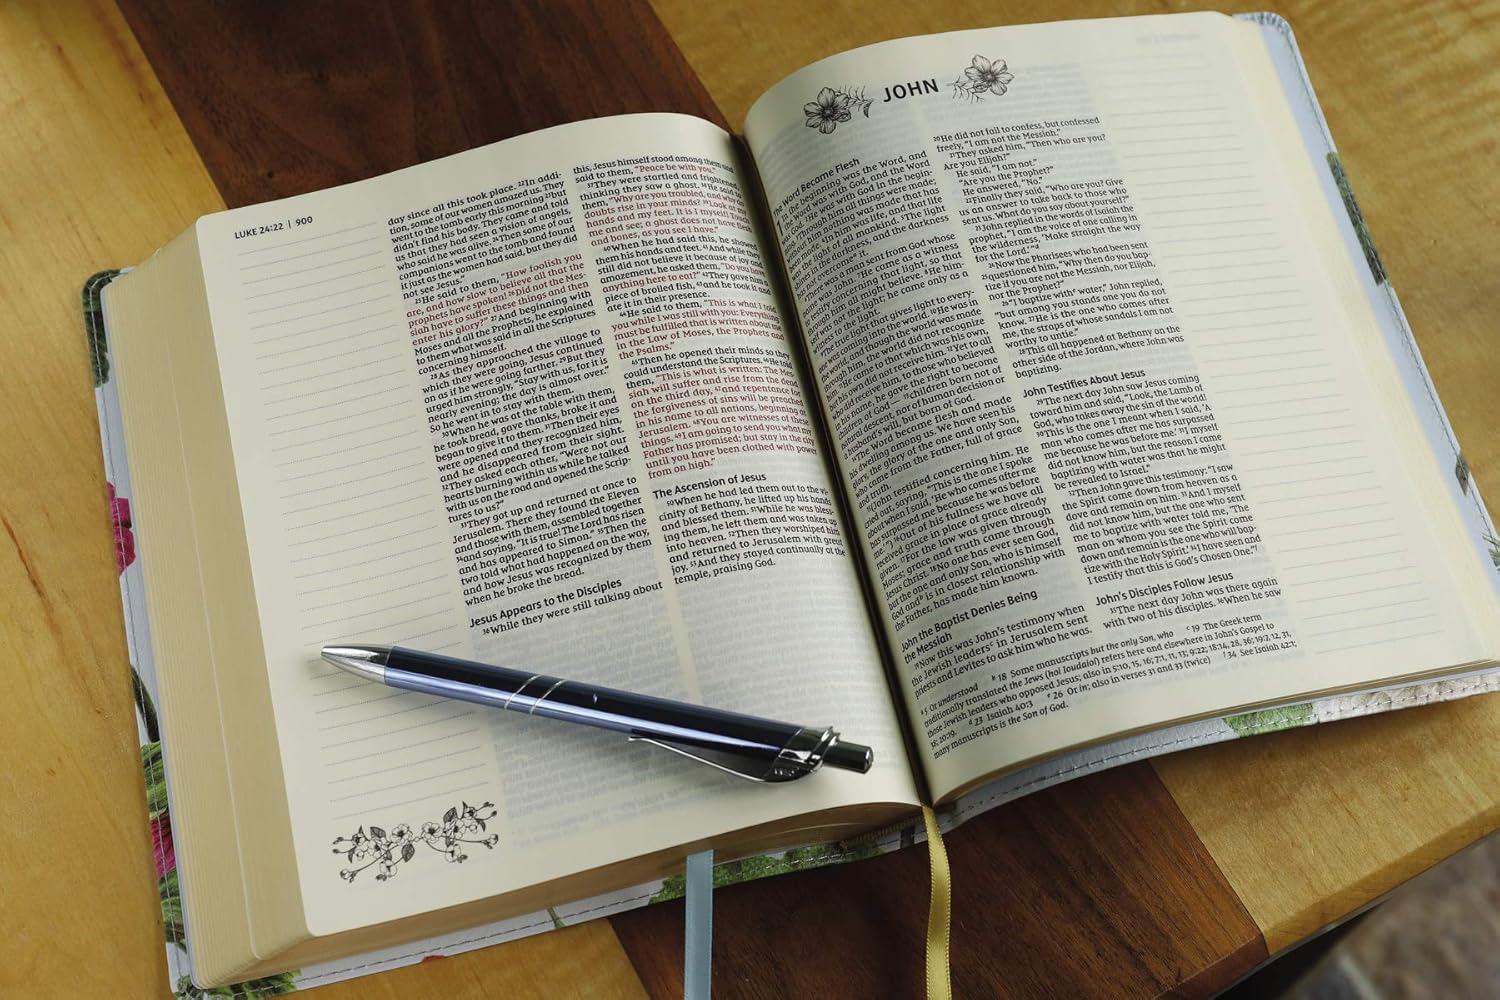 LUKE 24:22 | 900
day since all this took place. 22In addi-
tion, some of our women amazed us. They
went to the tomb early this morning 23but
didn't find his body. They came and told
us that they had seen a vision of angels,
who said he was alive. 24Then some of our
companions went to the tomb and found
it just as the women had said, but they did
not see Jesus."
25He said to them, "How foolish you
are, and how slow to believe all that the
prophets have spoken! 26Did not the Mes-
siah have to suffer these things and then
enter his glory?" 27And beginning with
Moses and all the Prophets, he explained
to them what was said in all the Scriptures
concerning himself.
28As they approached the village to
which they were going, Jesus continued
on as if he were going farther. 29But they
urged him strongly, "Stay with us, for it is
nearly evening; the day is almost over."
So he went in to stay with them.
30When he was at the table with them,
he took bread, gave thanks, broke it and
began to give it to them. 31Then their eyes
were opened and they recognized him,
and he disappeared from their sight.
32They asked each other, "Were not our
hearts burning within us while he talked
with us on the road and opened the Scrip-
tures to us?"
33They got up and returned at once to
Jerusalem. There they found the Eleven
and those with them, assembled together
34and saying, "It is true! The Lord has risen
and has appeared to Simon." 35Then the
two told what had happened on the way,
and how Jesus was recognized by them
when he broke the bread.
Jesus Appears to the Disciples
36While they were still talking about
this, Jesus himself stood among them and
said to them, "Peace be with you."
37They were startled and frightened,
thinking they saw a ghost. 38He said to
them, "Why are you troubled, and why do
doubts rise in your minds? 39Look at my
hands and my feet. It is I myself! Touch
me and see; a ghost does not have flesh
and bones, as you see I have."
40When he had said this, he showed
them his hands and feet. 41And while they
still did not believe it because of joy and
amazement, he asked them, "Do you have
anything here to eat?" 42They gave him a
piece of broiled fish, 43and he took it and
ate it in their presence.
44He said to them, "This is what I told
you while I was still with you: Everything
must be fulfilled that is written about me
in the Law of Moses, the Prophets and
the Psalms."
45Then he opened their minds so they
could understand the Scriptures. 46He told
them, "This is what is written: The Mes-
siah will suffer and rise from the dead
on the third day, 47and repentance for
the forgiveness of sins will be preached
in his name to all nations, beginning at
Jerusalem. 48You are witnesses of these
things. 49I am going to send you what my
Father has promised; but stay in the city
until you have been clothed with power
from on high."
The Ascension of Jesus
50When he had led them out to the vi-
cinity of Bethany, he lifted up his hands
and blessed them. 51While he was bless-
ing them, he left them and was taken up
into heaven. 52Then they worshiped him
and returned to Jerusalem with great
joy. 53And they stayed continually at the
temple, praising God.
JOHN
The Word Became Flesh
1 In the beginning was the Word, and
the Word was with God, and the Word
was God. 2He was with God in the begin-
ning. 3Through him all things were made;
without him nothing was made that has
been made. 4In him was life, and that life
was the light of all mankind. 5The light
shines in the darkness, and the darkness
has not overcome it.
6There was a man sent from God whose
name was John. 7He came as a witness
to testify concerning that light, so that
through him all might believe. 8He him-
self was not the light; he came only as a
witness to the light.
9The true light that gives light to every-
one was coming into the world. 10He was in
the world, and though the world was made
through him, the world did not recognize
him. 11He came to that which was his own,
but his own did not receive him. 12Yet to all
who did receive him, to those who believed
in his name, he gave the right to become
children of God — 13children born not of
natural descent, nor of human decision or
a husband's will, but born of God.
14The Word became flesh and made
his dwelling among us. We have seen his
glory, the glory of the one and only Son,
who came from the Father, full of grace
and truth.
15(John testified concerning him. He
cried out, saying, "This is the one I spoke
about when I said, 'He who comes after me
has surpassed me because he was before
me.'") 16Out of his fullness we have all
received grace in place of grace already
given. 17For the law was given through
Moses; grace and truth came through
Jesus Christ. 18No one has ever seen God,
but the one and only Son, who is himself
God and is in closest relationship with
the Father, has made him known.
John the Baptist Denies Being
the Messiah
19Now this was John's testimony when
the Jewish leaders in Jerusalem sent
priests and Levites to ask him who he was.
20He did not fail to confess, but confessed
freely, "I am not the Messiah."
21They asked him, "Then who are you?
Are you Elijah?"
He said, "I am not."
"Are you the Prophet?"
He answered, "No."
22Finally they said, "Who are you? Give
us an answer to take back to those who
sent us. What do you say about yourself?"
23John replied in the words of Isaiah the
prophet, "I am the voice of one calling in
the wilderness, 'Make straight the way
for the Lord.'"d
24Now the Pharisees who had been sent
25questioned him, "Why then do you bap-
tize if you are not the Messiah, nor Elijah,
nor the Prophet?"
26"I baptize with water," John replied,
"but among you stands one you do not
know. 27He is the one who comes after
me, the straps of whose sandals I am not
worthy to untie."
28This all happened at Bethany on the
other side of the Jordan, where John was
baptizing.
John Testifies About Jesus
29The next day John saw Jesus coming
toward him and said, "Look, the Lamb of
God, who takes away the sin of the world!
30This is the one I meant when I said, 'A
man who comes after me has surpassed
me because he was before me.' 31I myself
did not know him, but the reason I came
baptizing with water was that he might
be revealed to Israel."
32Then John gave this testimony: "I saw
the Spirit come down from heaven as a
dove and remain on him. 33And I myself
did not know him, but the one who sent
me to baptize with water told me, 'The
man on whom you see the Spirit come
down and remain is the one who will bap-
tize with the Holy Spirit.' 34I have seen and
I testify that this is God's Chosen One."f
John's Disciples Follow Jesus
35The next day John was there again
with two of his disciples. 36When he saw
a 5 Or understood b 18 Some manuscripts but the only Son, who c 19 The Greek term
traditionally translated the Jews (hoi Ioudaioi) refers here and elsewhere in John's Gospel to
those Jewish leaders who opposed Jesus; also in 5:10, 15, 16; 7:1, 11, 13; 9:22; 18:14, 28, 36; 19:7, 12, 31,
38; 20:19. d 23 Isaiah 40:3 e 26 Or in; also in verses 31 and 33 (twice) f 34 See Isaiah 42:1;
many manuscripts is the Son of God.